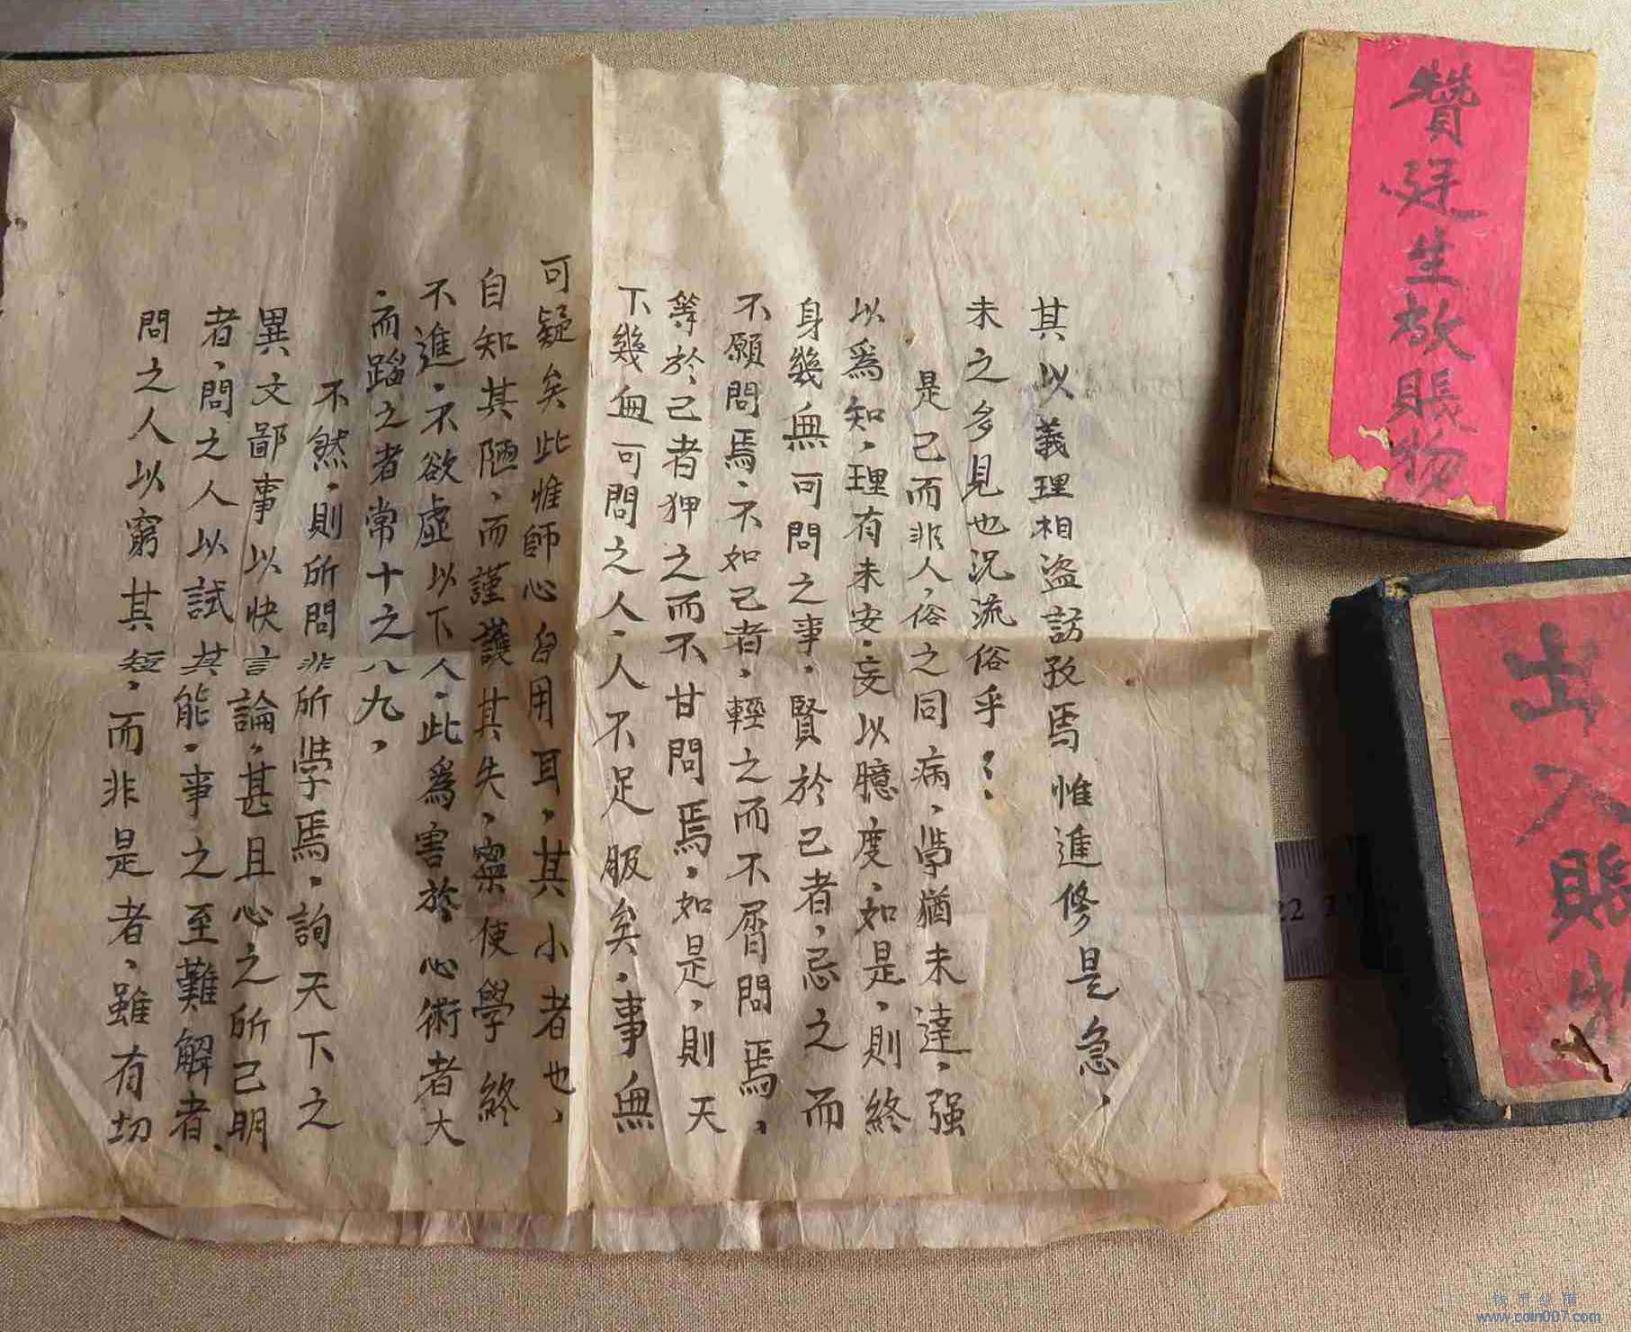 其以義理相盗訪孜焉惟進修是急，
未之多見也況流俗乎：：
是己而非人，俗之同病，學猶未達，强
以爲知，理有未安，妄以臆度，如是，則終
身幾無可問之事，賢於己者，忌之而
不願問焉，不如己者，輕之而不屑問焉，
等於己者狎之而不甘問焉，如是，則天
下幾無可問之人，人不足服矣，事無
可疑矣此惟師心自用耳，其小者也，
自知其陋，而謹護其失，寧使學終
不進，不欲虛以下人，此爲害於心術者大
，而蹈之者常十之八九，
不然，則所問非所學焉，詢天下之
異文鄙事以快言論，甚且心之所己明
者，問之人以試其能，事之至難解者，
問之人以窮其短，而非是者，雖有切
贊廷生放賬物
出入賬
22
www.coin007.com